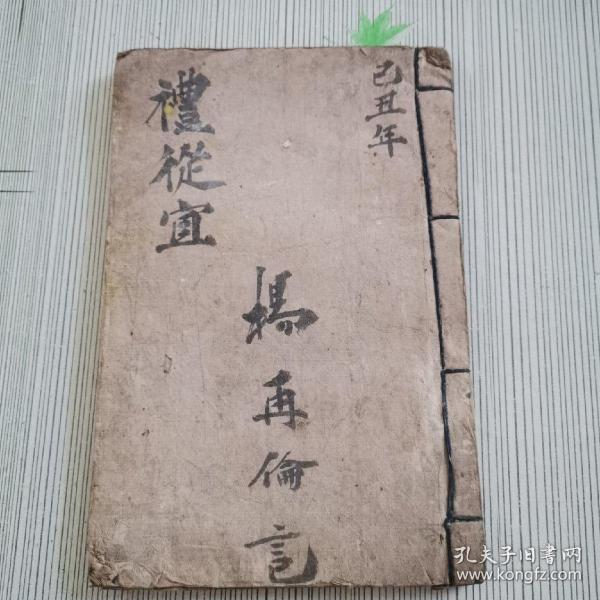 己丑年
禮從宜
楊再倫記
孔夫子旧书网
www.kongfz.com